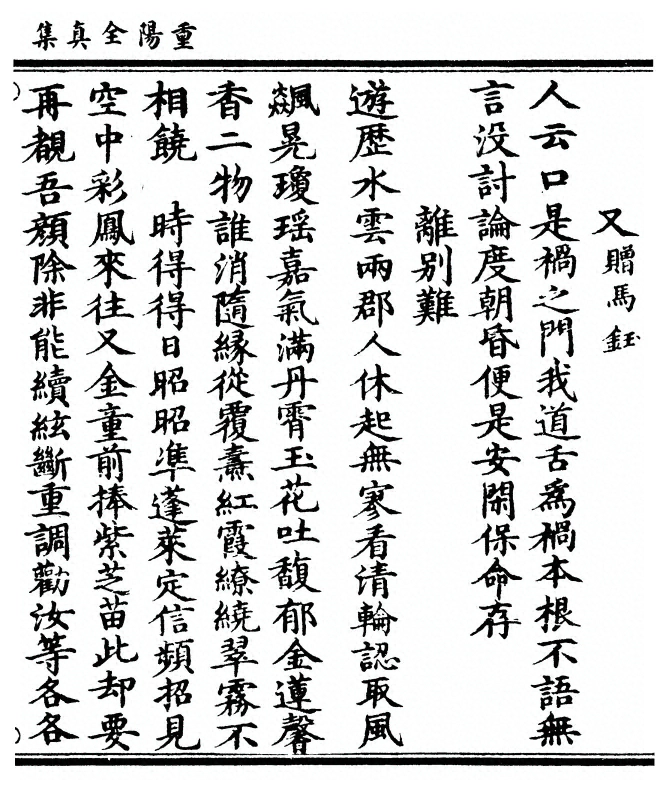 重陽全真集
又贈馬鈺
人云口是禍之門我道舌爲禍本根不語無
言没討論度朝昏便是安閑保命存
離别難
遊歷水雲兩郡人休起無寥看清輪認取風
飆晃瓊瑶嘉氣滿丹霄玉花吐馥郁金蓮馨
香二物誰消隨緣從覆燾紅霞繚繞翠霧不
相饒　時得得日昭昭準蓬萊定信頻招見
空中彩鳳來往又金童前捧紫芝苗此却要
再覩吾顔除非能續絃斷重調勸汝等各各